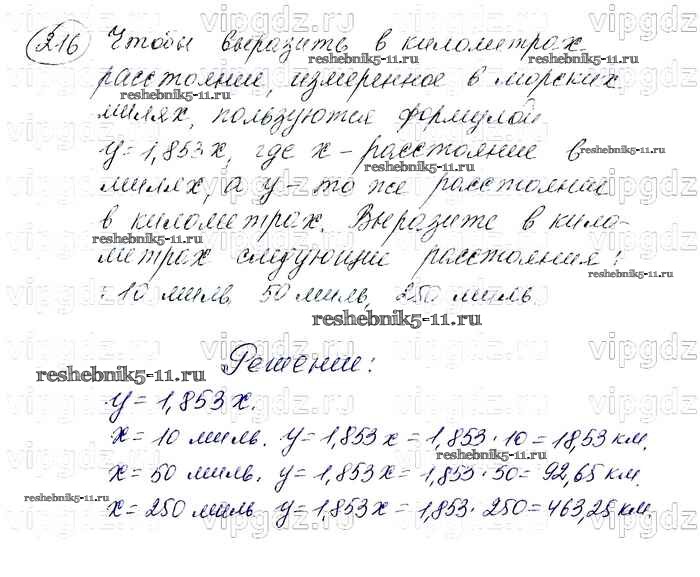 216 Чтобы выразить в километрах
расстояние, измеренное в морских
милях, пользуются формулой
y = 1,853x, где x – расстояние в
милях, а y – то же расстояние
в километрах. Выразите в кило-
метрах следующие расстояния:
: 10 миль, 50 миль, 250 миль.
Решение:
y = 1,853x.
x = 10 миль. y = 1,853x = 1,853·10 = 18,53 км.
x = 50 миль. y = 1,853x = 1,853·50 = 92,65 км.
x = 250 миль. y = 1,853x = 1,853·250 = 463,25 км.
reshebnik5-11.ru
vipgdz.ru